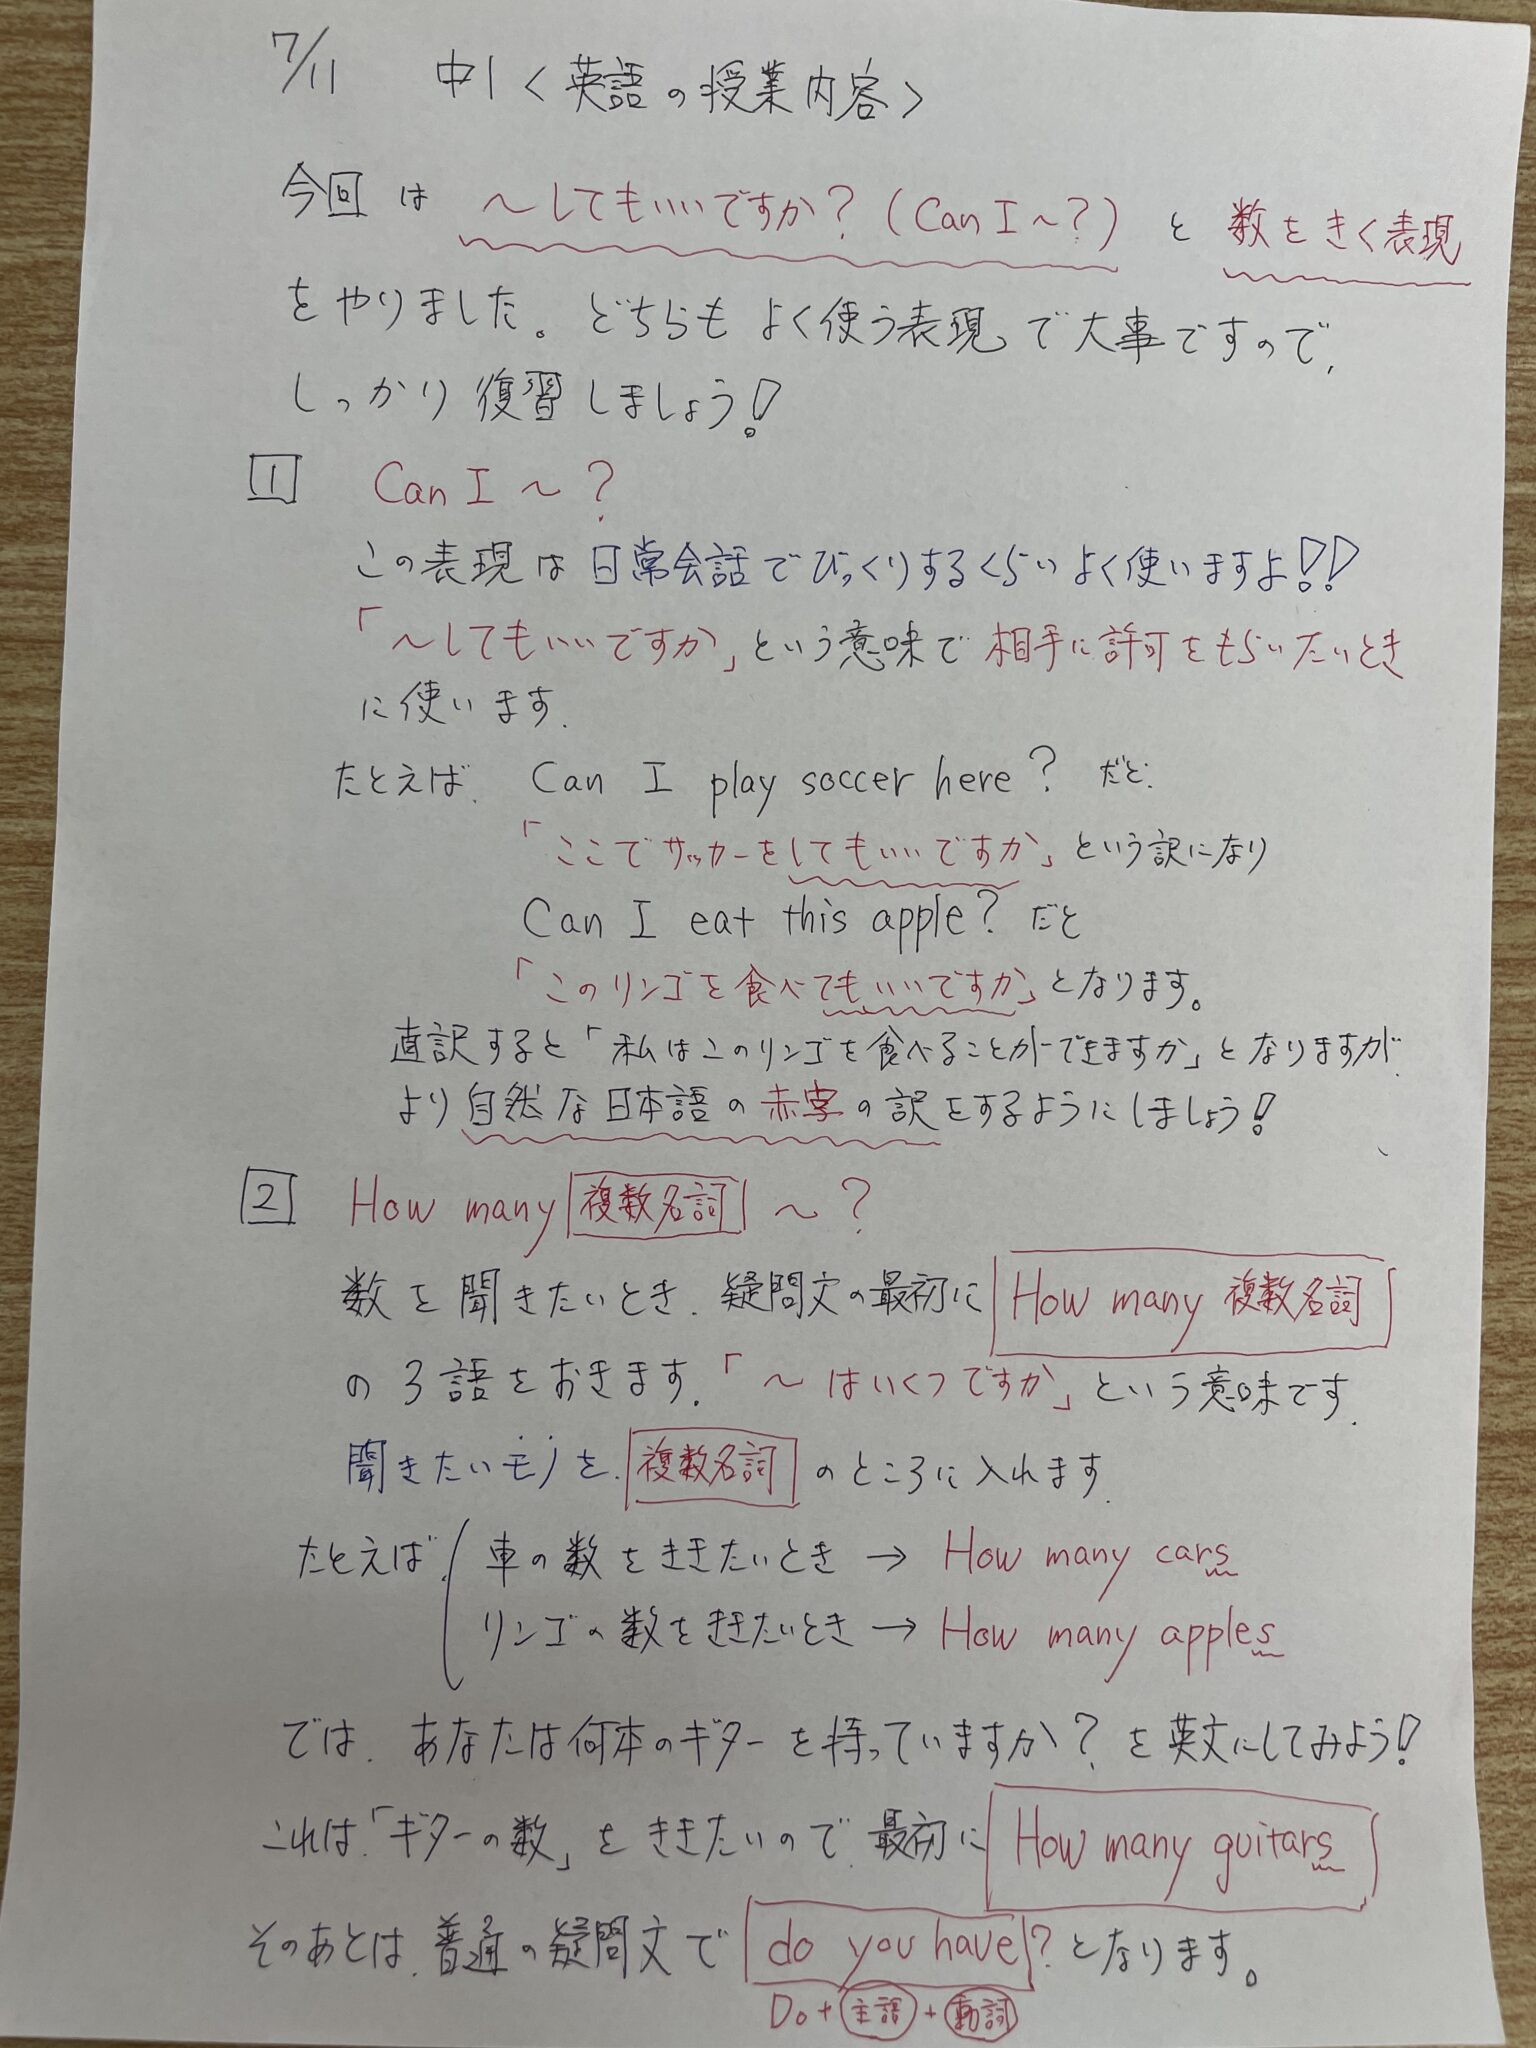 7/11 中1<英語の授業内容>
今回は ~してもいいですか?(Can I~?)と 数をきく表現
をやりました。どちらもよく使う表現で大事ですので、
しっかり復習しましょう!
1 Can I ~ ?
この表現は日常会話でびっくりするくらいよく使いますよ!!
「~してもいいですか」という意味で相手に許可をもらいたいとき
に使います.
たとえば、 Can I play soccer here? だと、
「ここでサッカーをしてもいいですか」という訳になり
Can I eat this apple? だと
「このリンゴを食べてもいいですか」となります。
直訳すると「私はこのリンゴを食べることができますか」となりますが、
より自然な日本語の赤字の訳をするようにしましょう!
2 How many 複数名詞 ~ ?
数を聞きたいとき、疑問文の最初に How many 複数名詞
の3語をおきます.「~はいくつですか」という意味です.
聞きたいモノを、複数名詞 のところに入れます.
たとえば、 車の数をききたいとき → How many cars
リンゴの数をききたいとき → How many apples
では、あなたは何本のギターを持っていますか?を英文にしてみよう!
これは、「ギターの数」をききたいので、最初に How many guitars
そのあとは、普通の疑問文で do you have? となります。
Do + 主語 + 動詞